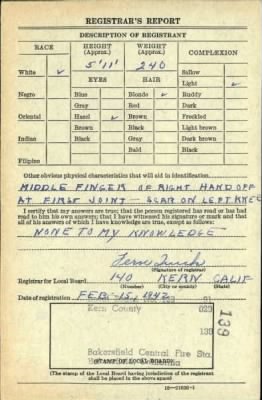 REGISTRAR'S REPORT
DESCRIPTION OF REGISTRANT
RACE HEIGHT (Approx.) WEIGHT (Approx.) COMPLEXION
5'11" 240 Sallow
White ✓ EYES HAIR Light ✓
Negro Blue Blonde ✓ Ruddy
Gray Red Dark
Oriental Hazel ✓ Brown Freckled
Brown Black Light brown
Indian Black Gray Dark brown
Bald Black
Filipino
Other obvious physical characteristics that will aid in identification
MIDDLE FINGER OF RIGHT HAND OFF
AT FIRST JOINT — SCAR ON LEFT KNEE
I certify that my answers are true; that the person registered has read or has had
read to him his own answers; that I have witnessed his signature or mark and that
all of his answers of which I have knowledge are true, except as follows:
NONE TO MY KNOWLEDGE
(Signature of registrar)
Registrar for Local Board 140 KERN CALIF
(Number) (City or county) (State)
Date of registration FEB-15, 1942
Kern County 029
139
Bakersfield Central Fire Sta.
(STAMP OF LOCAL BOARD)
(The stamp of the Local Board having jurisdiction of the registrant
shall be placed in the above space)